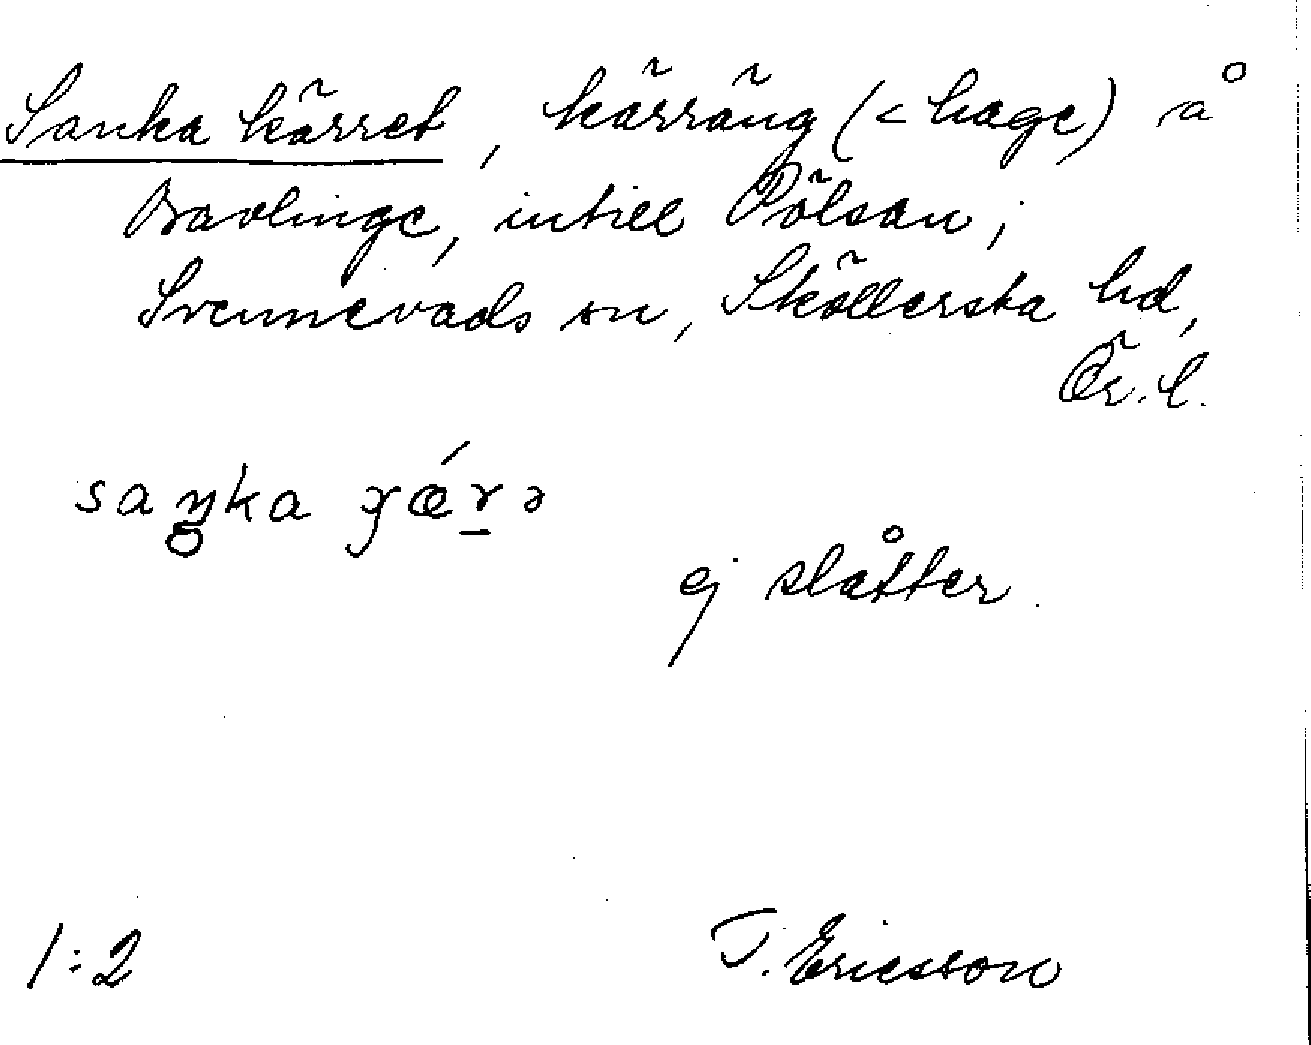 Sanka kärret, kärräng (< hage) å
Bavlinge, intill Pölsan;
Svennevads sn, Sköllersta hd,
Ör. l.
saŋka γǽrə
ej slåtter.
1:2
T. Ericsson